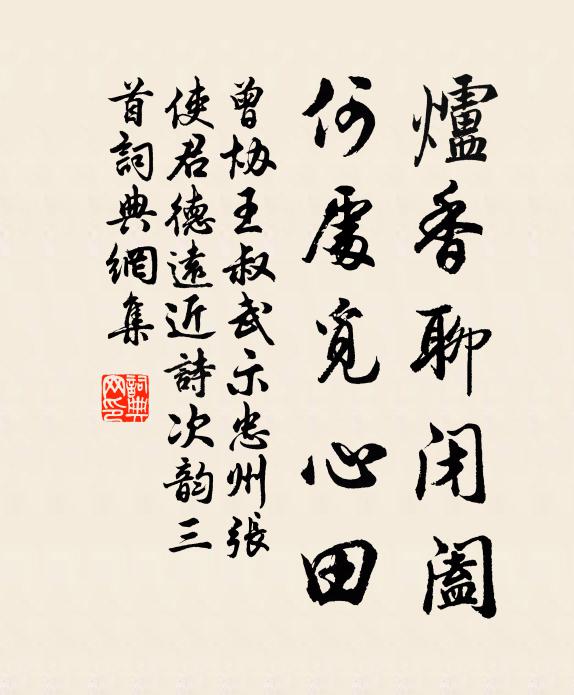 爐香聊闭闔
何處覓心田
曾协王叔武示忠州張
使君德遠近詩次韵三
首詞典網集
詞典网印